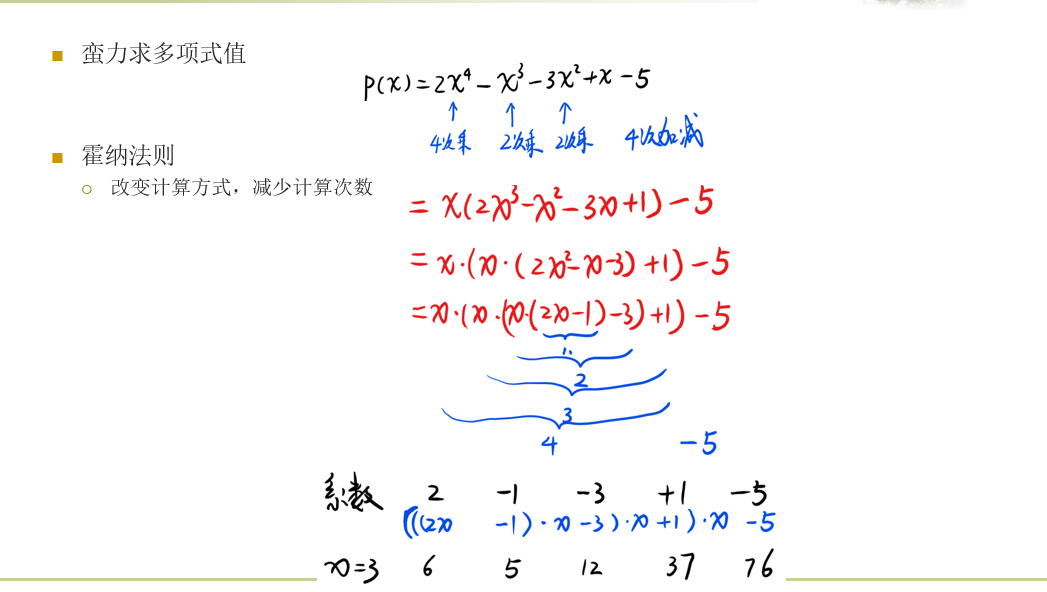 蛮力求多项式值
p(x)=2x⁴-x³-3x²+x-5
↑ ↑ ↑
4次乘 2次乘 2次乘 4次加减
霍纳法则
改变计算方式，减少计算次数
= x(2x³-x²-3x+1)-5
= x·(x·(2x²-x-3)+1)-5
=x·(x·(x·(2x-1)-3)+1)-5
1.
2
3
4 -5
系数 2 -1 -3 +1 -5
(((2x -1)·x-3)·x+1)·x -5
x=3 6 5 12 37 76